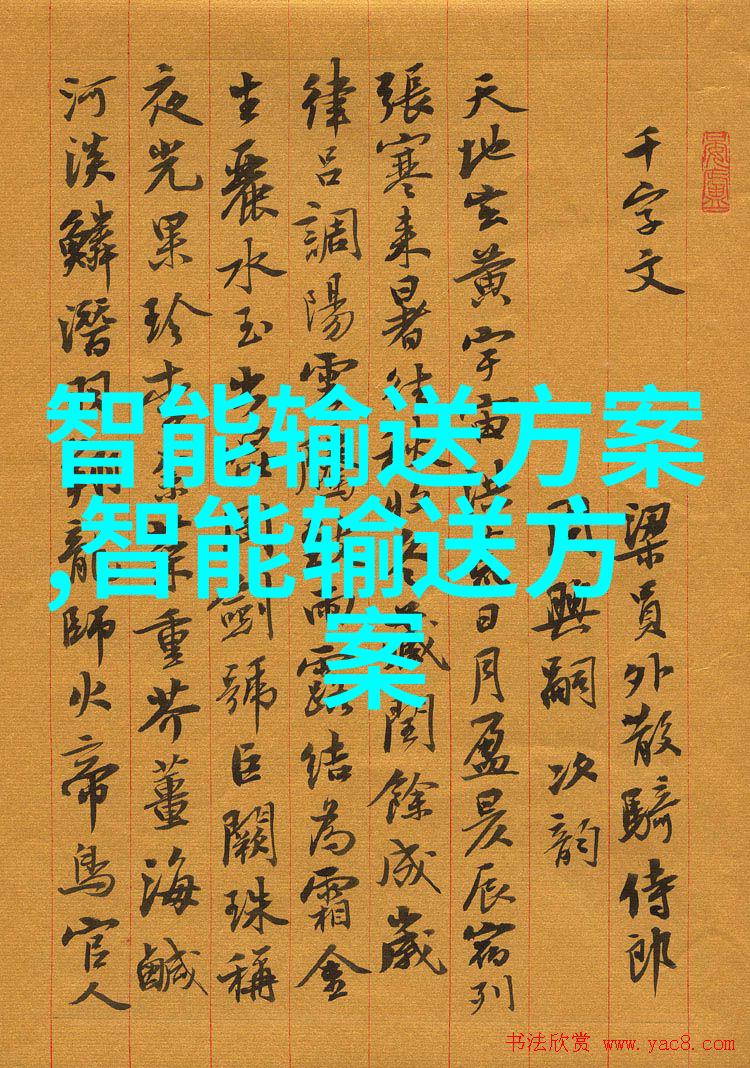 千字文 梁員外散騎侍郎
興嗣次韵
天地玄黄宇宙洪荒日月盈昃辰宿列
張寒来暑往秋收冬藏閏餘成歲
律吕調陽雲騰雨露结為霜金
生麗水玉出崑岡劍號巨闕珠稱
夜光果珍李菜重芥薑海鹹
河淡鱗潛羽翔龍師火帝鳥官人
智能输送方案
,智能输送方
案
书法欣赏 www.yac8.com